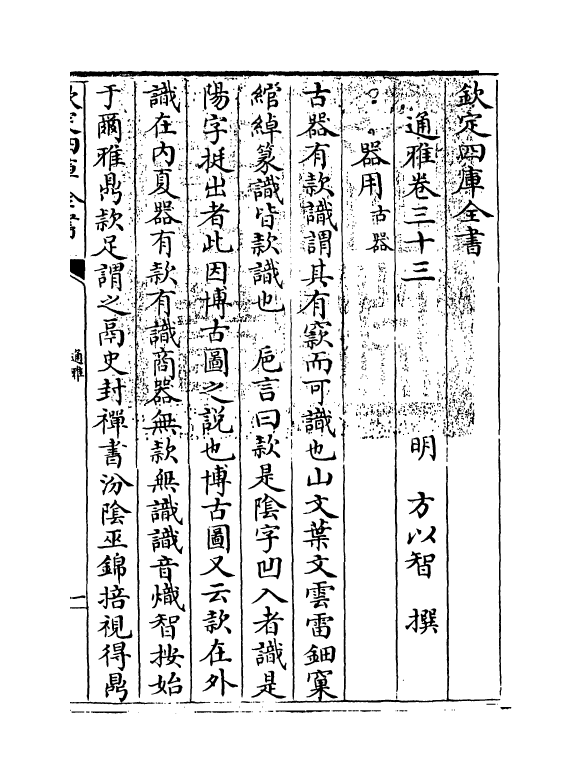 欽定四庫全書
通雅卷三十三
明 方以智 撰
器用古器
古器有款識謂其有窾而可識也山文葉文雲雷鈿窠
綰綽篆識皆款識也 巵言曰款是陰字凹入者識是
陽字挺出者此因博古圖之說也博古圖又云款在外
識在內夏器有款有識商器無款無識識音熾智按始
于爾雅鼎款足謂之鬲史封禪書汾隂巫錦掊視得鼎
通雅
一